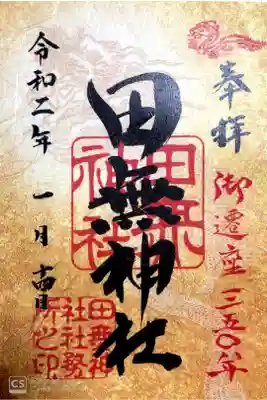 奉拝
御遷座三五〇年
田無神社
田無神社
田無神社社務所之印
令和二年 一月 十四日
CS